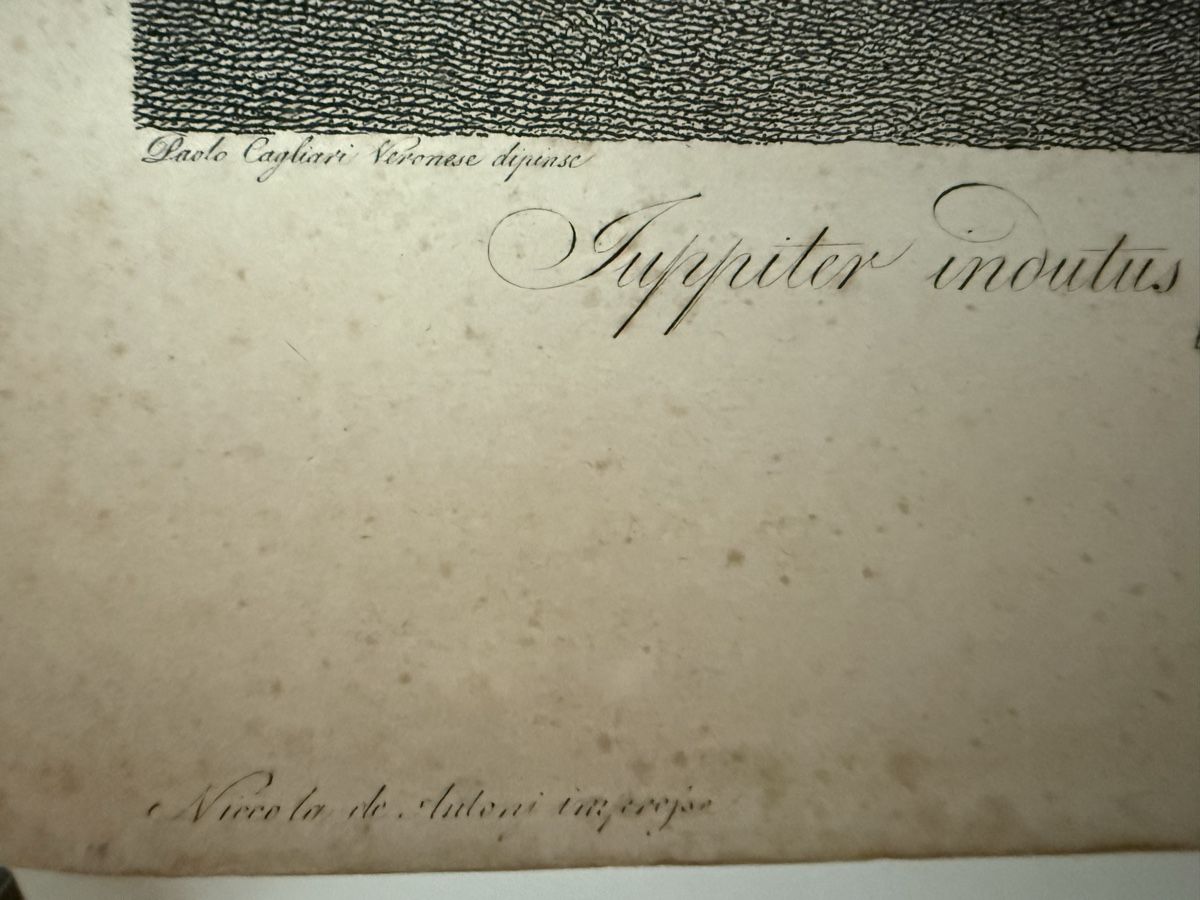 Paolo Cagliari Veronese dipinse
Juppiter indutus
Niccola de Antoni impresse